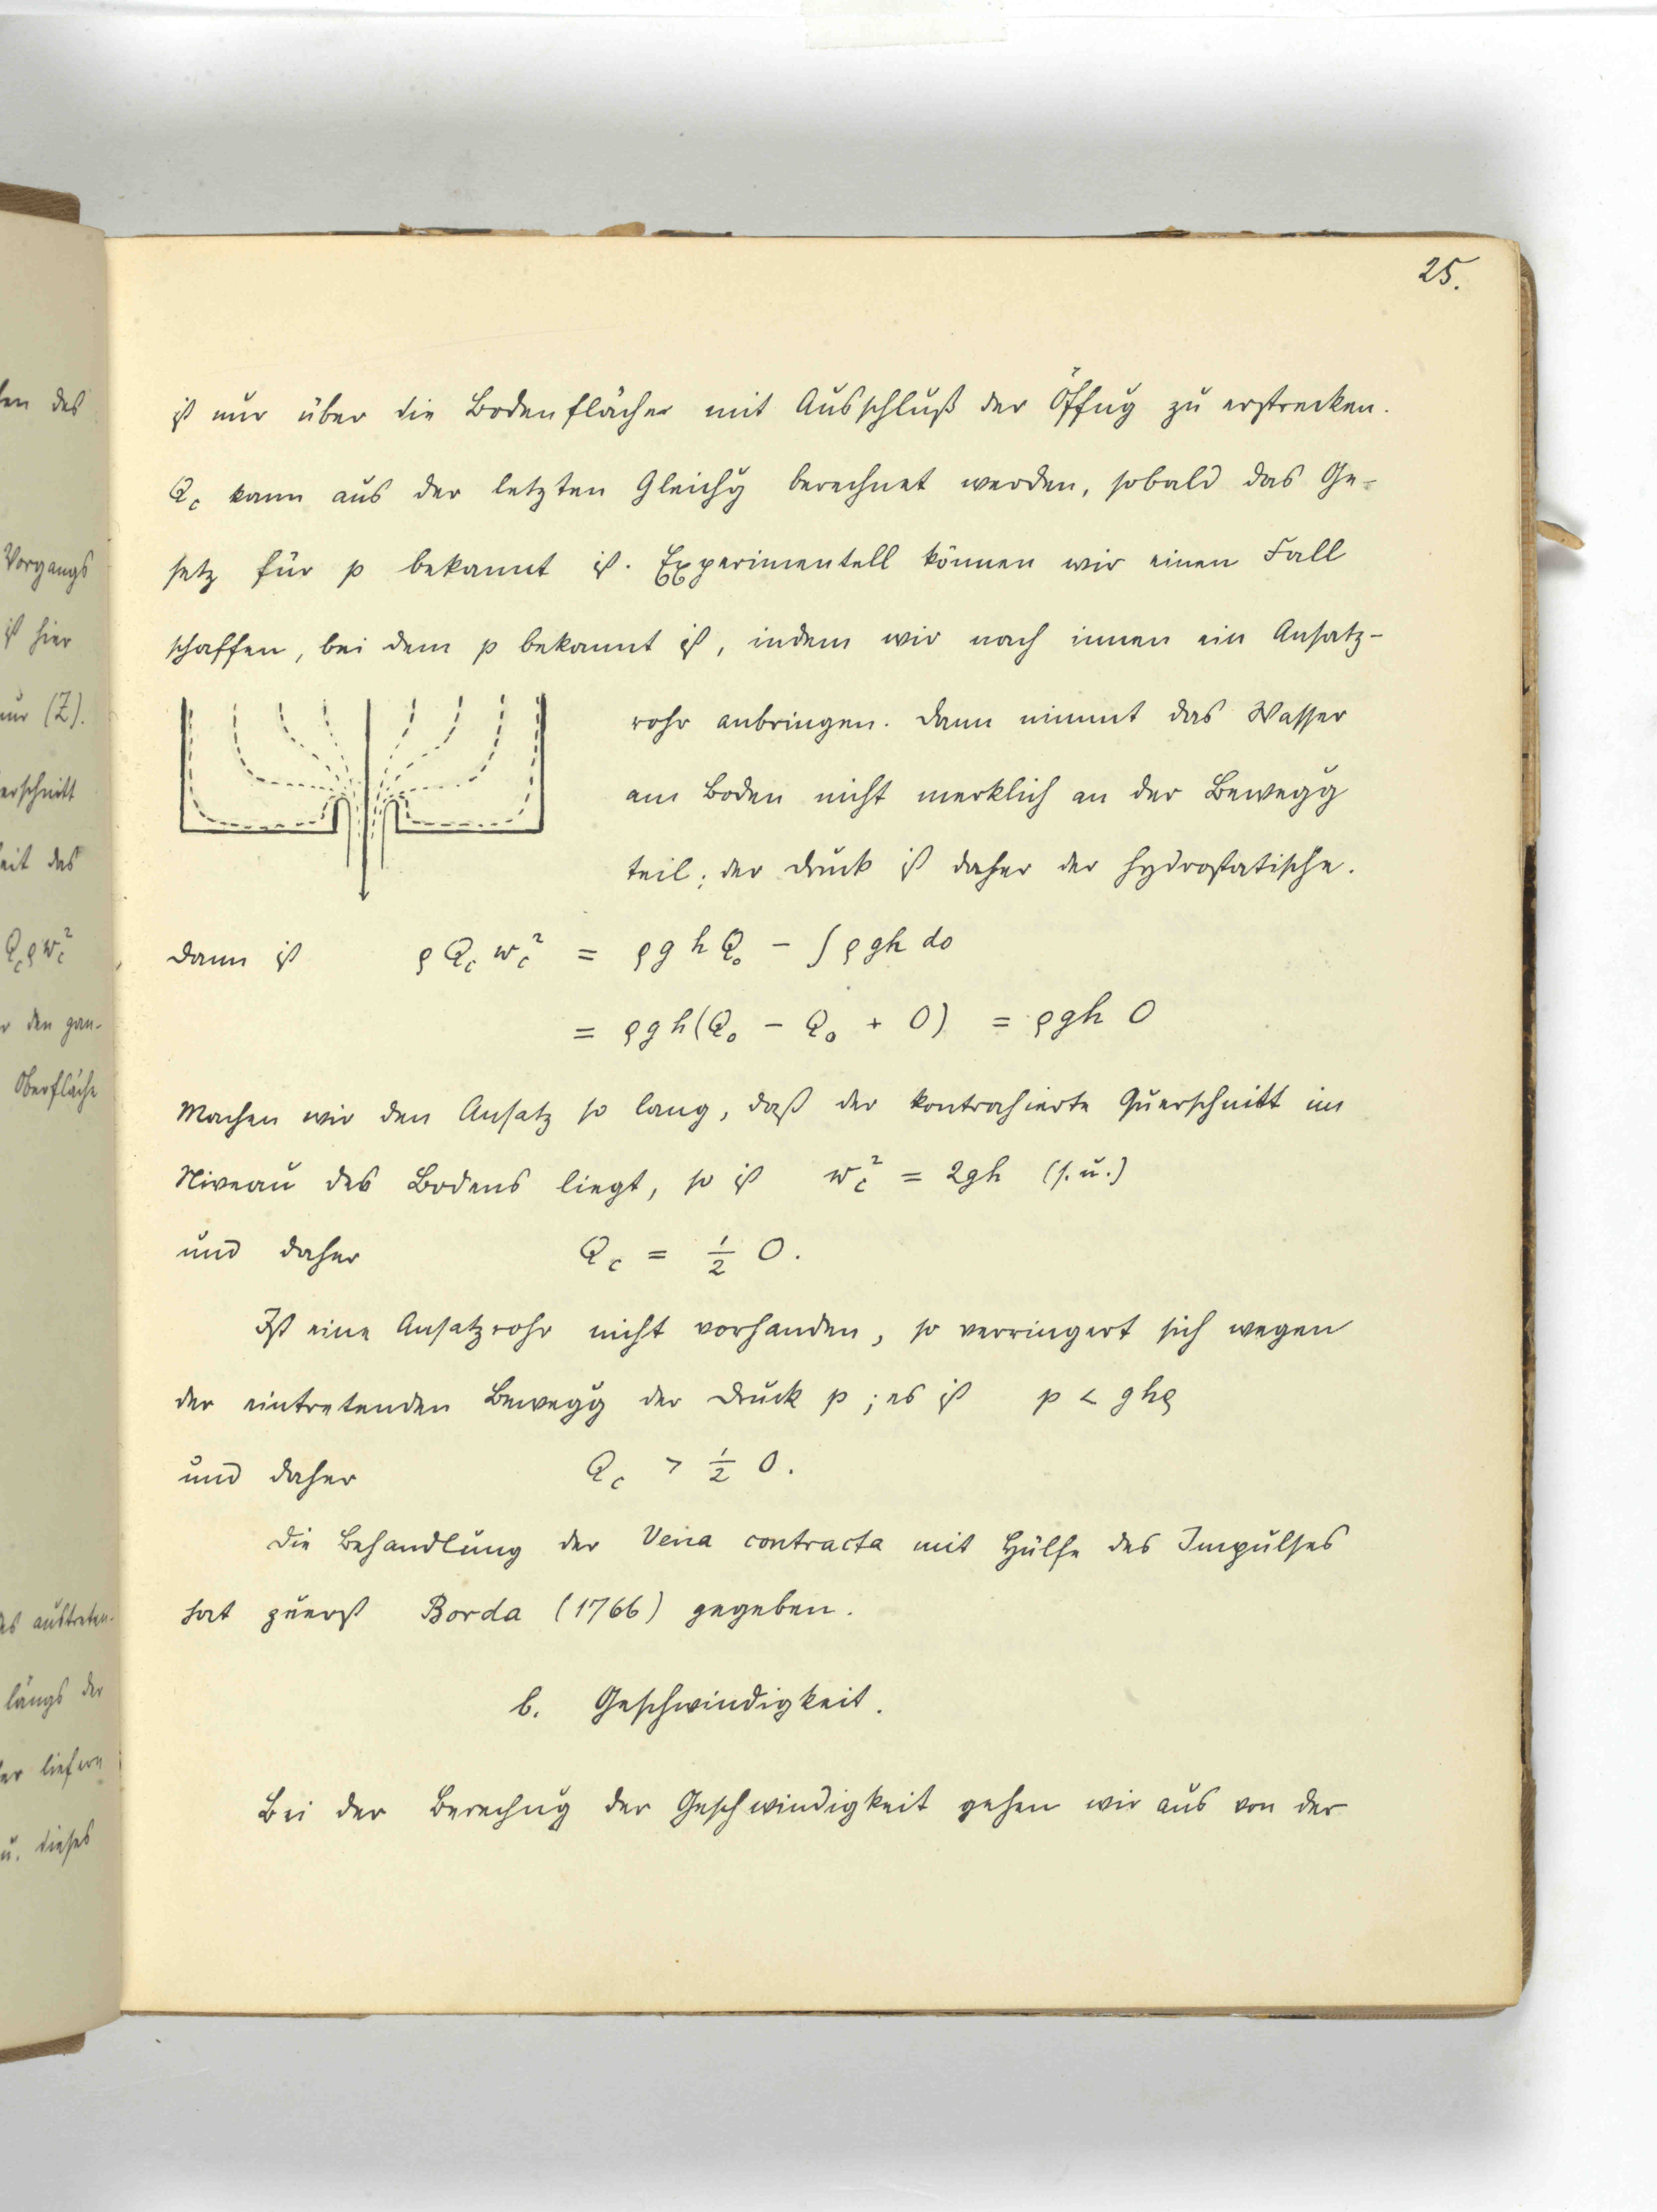 25.
ist nur über die Bodenfläche mit Ausschluß der Öffug zu erstrecken.
Q_c kann aus der letzten Gleichg berechnet werden, sobald das Ge-
setz für p bekannt ist. Experimentell können wir einen Fall
schaffen, bei dem p bekannt ist, indem wir nach innen ein Ansatz-
rohr anbringen. Dann nimmt das Wasser
am Boden nicht merklich an der Bewegg
teil; der Druck ist daher der hydrostatische.
Dann ist ρ Q_c w_c² = ρ g h Q_o − ∫ ρ g h do
= ρ g h (Q_o − Q_o + O) = ρ g h O
Machen wir den Ansatz so lang, daß der kontrahierte Querschnitt im
Niveau des Bodens liegt, so ist w_c² = 2gh (s. u.)
und daher Q_c = 1/2 O.
Ist eine Ansatzrohr nicht vorhanden, so verringert sich wegen
der eintretenden Bewegg der Druck p; es ist p < g h ρ
und daher Q_c > 1/2 O.
Die Behandlung der Vena contracta mit Hülfe des Impulses
hat zuerst Borda (1766) gegeben.
b. Geschwindigkeit.
Bei der Berechnug der Geschwindigkeit gehen wir aus von der
des
Vorgangs
ist hier
nur (Z).
des
Q_c ρ w_c²
den gan-
Oberfläche
längs der
liefern
u. dieses